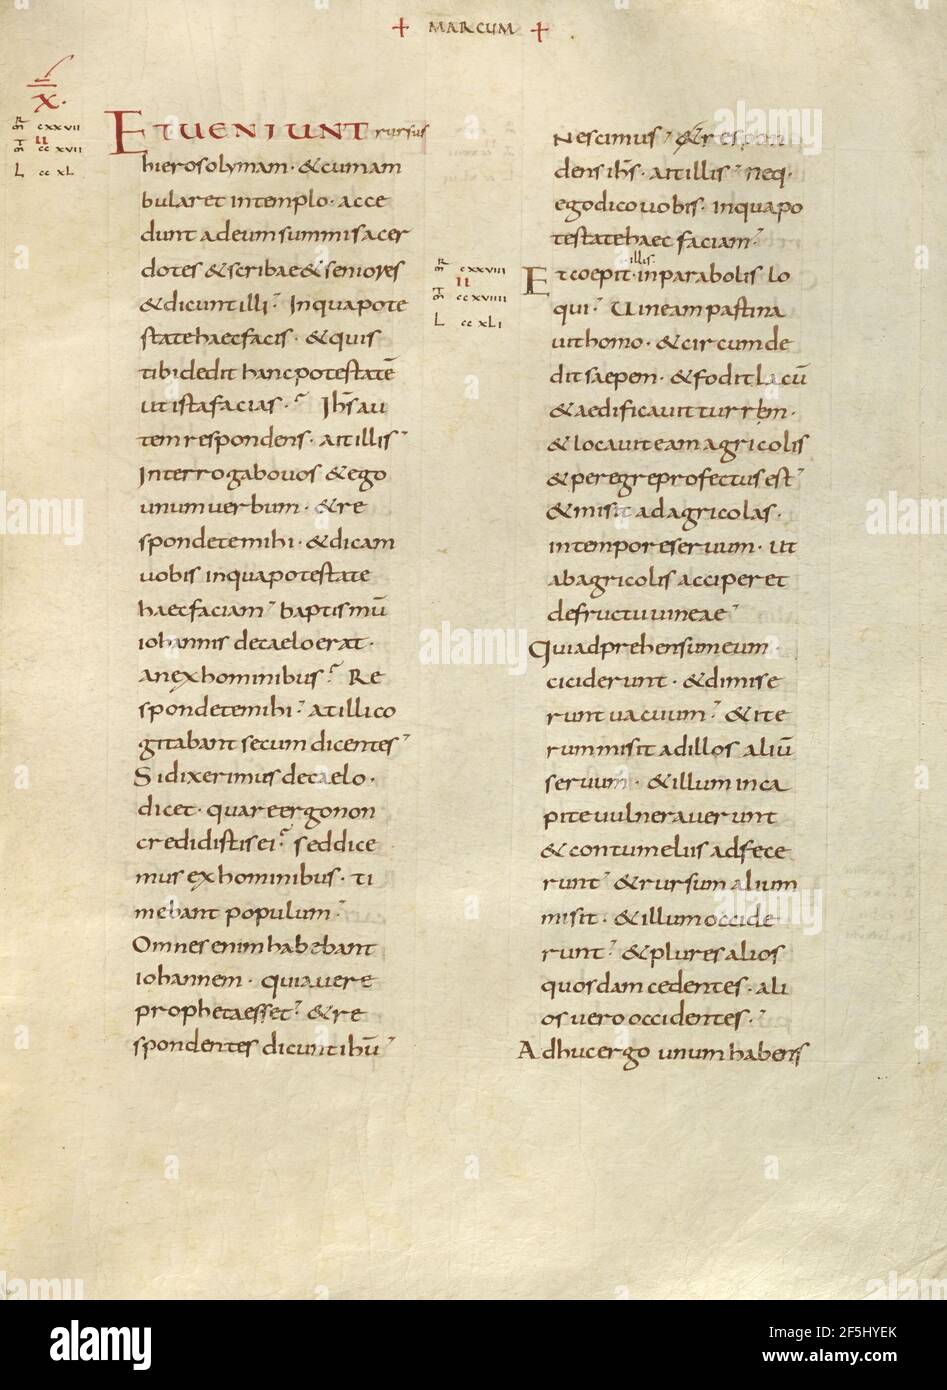 + MARCUM +
X.
R
m cxxvii
II
m ccxvii
L ccxl
ETUENIUNT rursus
hierosolymam · & cum am
bularet in templo · acce
dunt ad eum summi sacer
dotes & scribae & seniores
& dicunt illi · In qua pote
state haec facis · & quis
tibi dedit hanc potestatē
ut ista facias · Ihs̄ au
tem respondens · ait illis
Interrogabo uos & ego
unum uerbum · & re
spondete mihi · & dicam
uobis in qua potestate
haec faciam baptismū
iohannis de caelo erat ·
an ex hominibus Re
spondete mihi at illi co
gitabant secum dicentes
Si dixerimus de caelo ·
dicet · quare ergo non
credidistis ei sed dice
mus ex hominibus · ti
mebant populum
Omnes enim habebant
iohannem · quia uere
propheta esset & re
spondentes dicunt ihū
Nescimus & respon
dens ihs̄ · ait illis neq·
ego dico uobis · in qua po
testate haec faciam
R
m cxxviii
II
m ccxviiii
L ccxli
Et coepit illis · in parabolis lo
qui · Uineam pastina
uit homo · & circumde
dit saepem · & fodit lacū
& aedificauit turrem ·
& locauit eam agricolis
& peregre profectus est
& misit ad agricolas ·
in tempore seruum · ut
ab agricolis acciperet
de fructu uineae
Qui adprehensum eum ·
ciciderunt · & dimise
runt uacuum & ite
rum misit ad illos aliū
seruum · & illum in ca
pite uulnerauerunt
& contumeliis adfece
runt & rursum alium
misit · & illum occide
runt & plures alios
quosdam cedentes · ali
os uero occidentes ·
Adhuc ergo unum habens
alamy
Image ID: 2F5HYEK
www.alamy.com